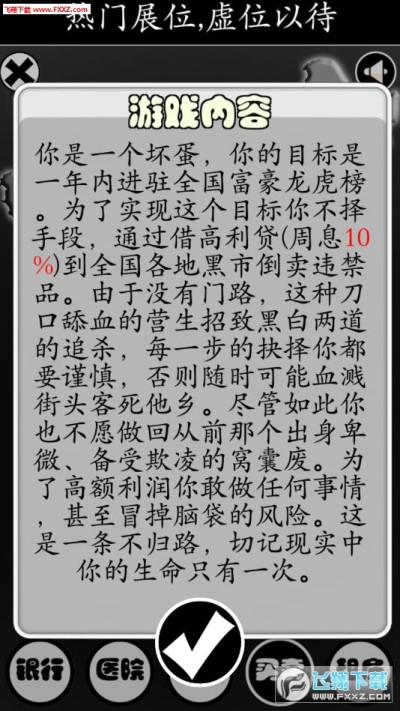 热门展位,虚位以待
飞翔下载
www.fxxz.com
游戏内容
你是一个坏蛋，你的目标是
一年内进驻全国富豪龙虎榜
。为了实现这个目标你不择
手段，通过借高利贷(周息10
%)到全国各地黑市倒卖违禁
品。由于没有门路，这种刀
口舔血的营生招致黑白两道
的追杀，每一步的抉择你都
要谨慎，否则随时可能血溅
街头客死他乡。尽管如此你
也不愿做回从前那个出身卑
微、备受欺凌的窝囊废。为
了高额利润你敢做任何事情
，甚至冒掉脑袋的风险。这
是一条不归路，切记现实中
你的生命只有一次。
银行
医院
飞翔下载
www.fxxz.com